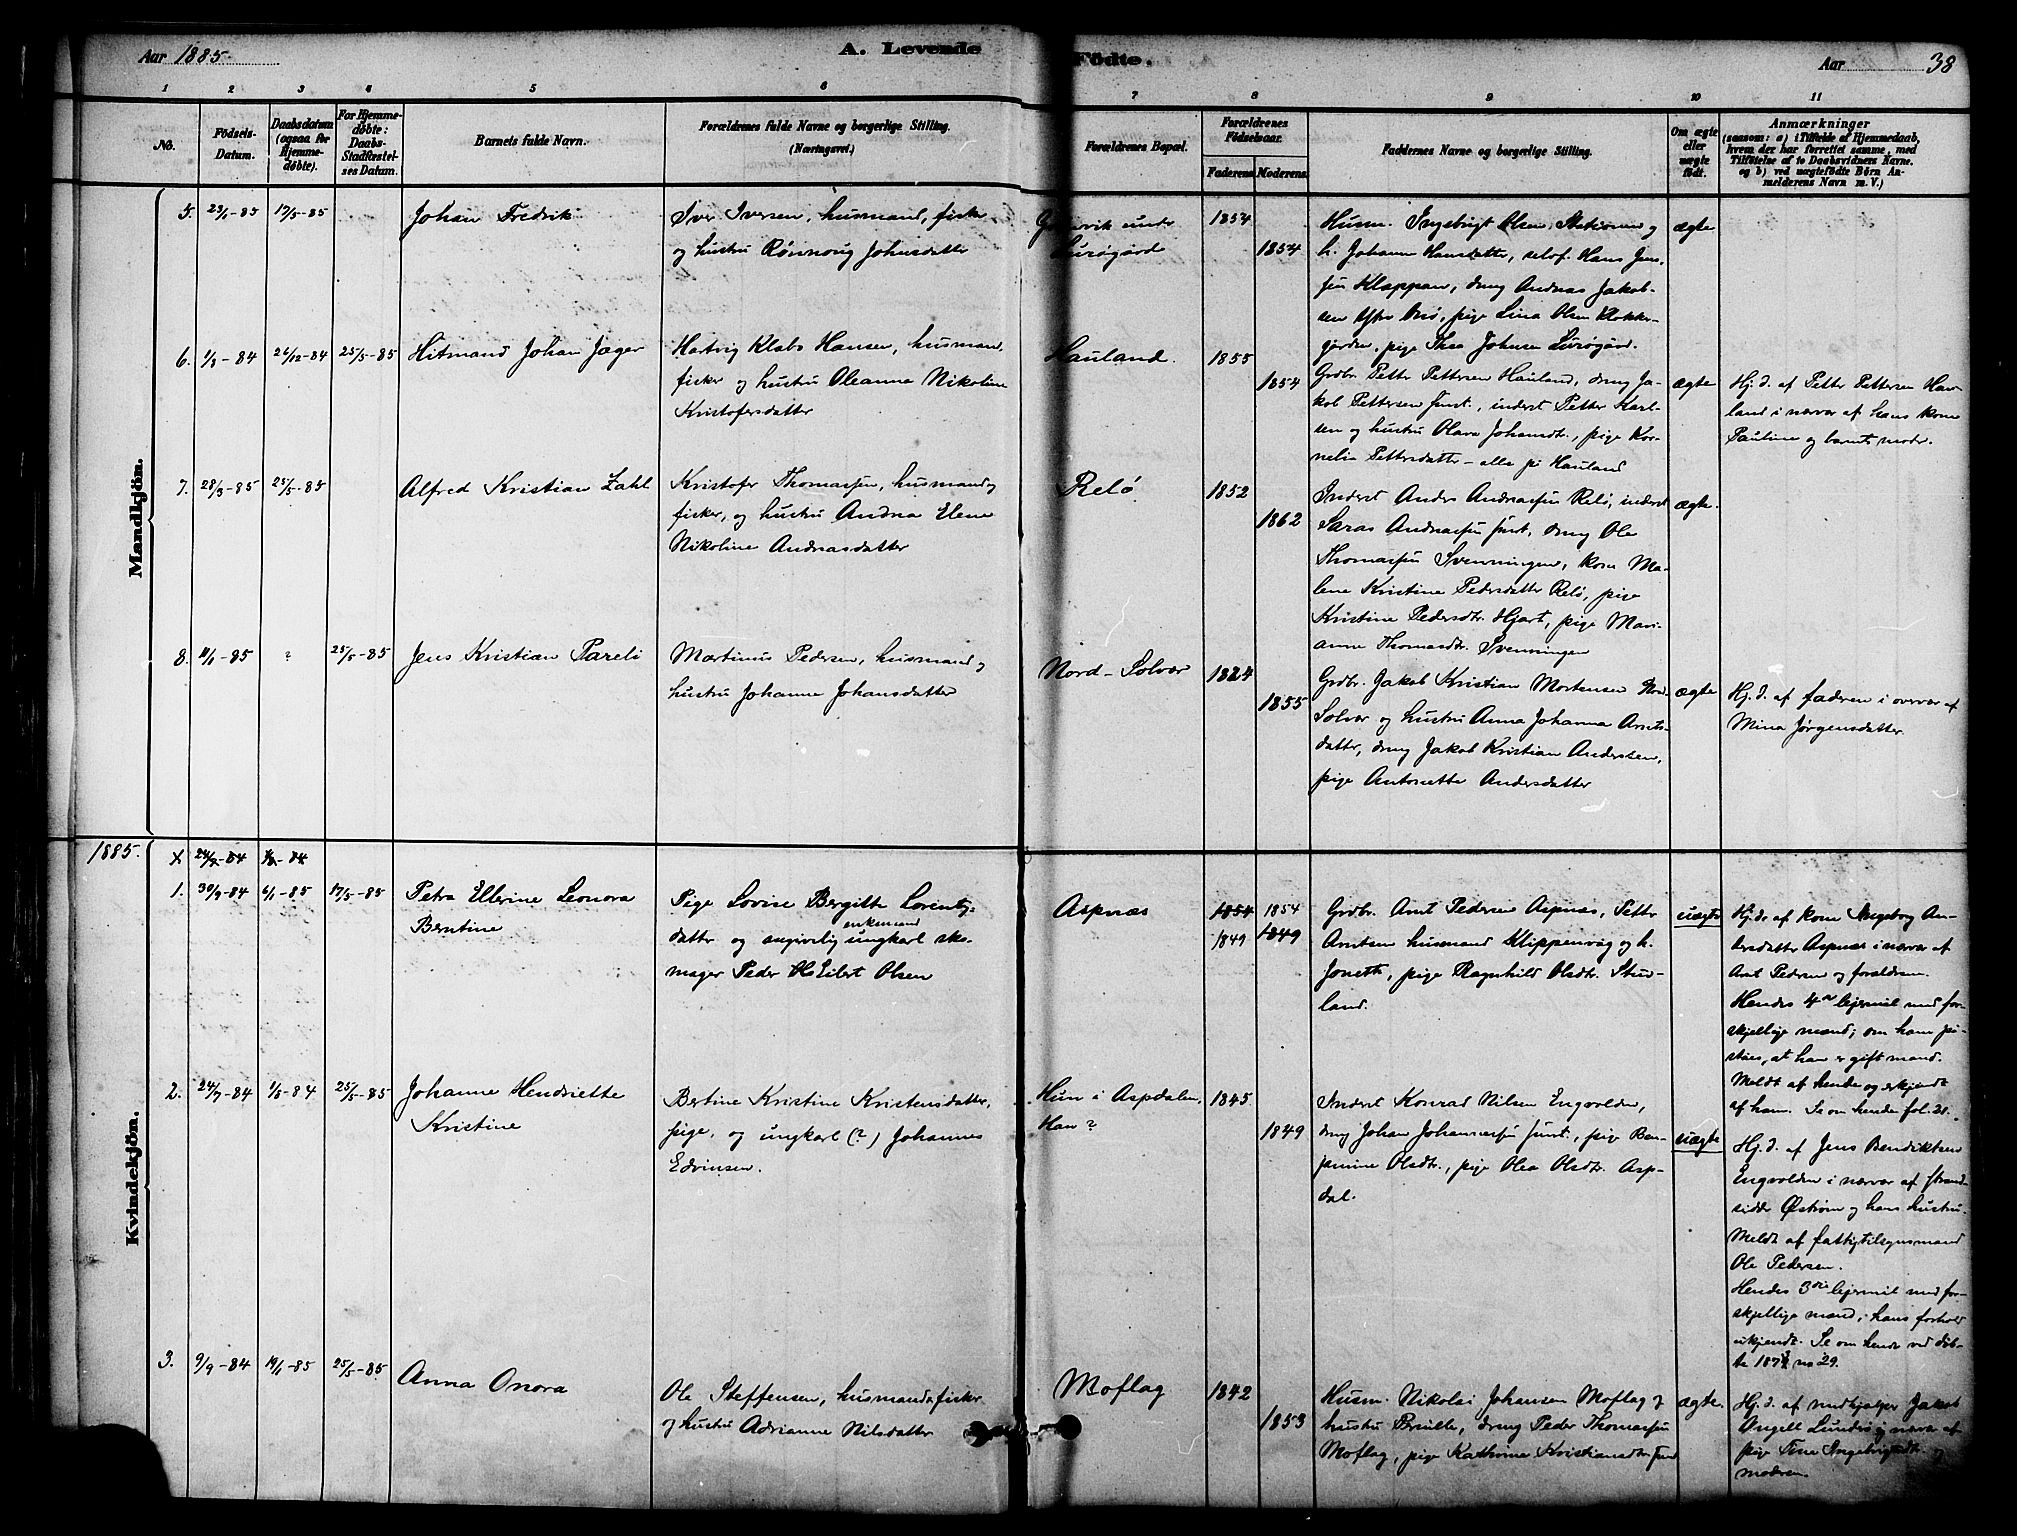 Aar 1885.
A. Levende
Födte.
Aar
38
1
2
3
4
5
6
7
8
9
10
11
No.
Födsels-
Datum.
Daabsdatum
(ogsaa for
Hjemme-
døbte).
For Hjemme-
døbte:
Daabs-
Stadfæstel-
ses Datum.
Barnets fulde Navn.
Forældrenes fulde Navne og borgerlige Stilling.
(Næringsvei.)
Forældrenes Bopæl.
Forældrenes
Födselsaar.
Faderens
Moderens
Faddernes Navne og borgerlige Stilling.
Om ægte
eller
uægte
født.
Anmærkninger
(saasom: a) i Tilfælde af Hjemmedaab,
hvem der har forrettet samme, med
Tilføielse af to Daabsvidners Navne,
og b) ved uægtefödte Börn An-
melderens Navn m. V.)
Mandkjön.
5.
17/5-85
Johan Fredrik
Iver Iversen, husmand, fisker
og hustru Rønnoug Johnsdatter
Lurøgård
1854
1854
Husm. Ingebrigt Olsen, og
h. Johanne Hansdatter, Hans Jens-
sen Klappan, dreng Andreas Jakob-
sen pige Lina Olsen Klokker-
gården, pige Thea Johnsen Lurøgård.
ægte
6.
1/3-84
26/12-84
25/5-85
Hitmand Johan Jæger
Hartvig Klabo Hansen, husmand,
fisker og hustru Oleanna Nikoline
Kristofersdatter
Hauland.
1855
1854
Grdbr. Petter Pettersen Hauland, dreng Ja-
kob Pettersen smst., inderst Petter Karl-
sen og hustru Olava Johansdtr., pige Kor-
nelia Pettersdatter - alle på Hauland
ægte
Hj. d. af Petter Pettersen Hau-
land i nærvær af hans kone
Pauline og barnets moder.
7.
28/3-85
25/5-85
Alfred Kristian Zahl
Kristofer Thomassen, husmand og
fisker, og hustru Andrea Elene
Nikoline Andreasdatter
Relø
1852
1862
Inderst Anders Andreassen Relø, inderst
Andreassen smst., dreng Ole
Thomassen Svenningen, kone Ma-
lene Kristine Pedersdatter Relø, pige
Kristine Pedersdtr. Hjart, pige Mari-
anne Thomasdtr. Svenningen
ægte.
8.
11/1-85
?
25/5-85
Jens Kristian Pareli
Martinus Pedersen, husmand og
hustru Johanne Johansdatter
Nord-Solvær
1824
1855
Grdbr. Jakob Kristian Mortensen Nord-
Solvær og hustru Anna Johanna Arnts-
datter, dreng Jakob Kristian Andersen,
pige Antonette Andersdatter
ægte
Hj. d. af faderen i overvær af
Mina Jørgensdatter.
1885.
Kvindekjön.
24/7-84
1/8-84
1.
30/9-84
6/1-85
17/5-85
Petra Ellerine Leonora
Berntine
Pige Lovise Bergitte Lorents-
datter og angivelig ungkarl enkemand sko-
mager Peder Ole Eilert Olsen
Aspnæs
1854
1849
1854
1849
Grdbr. Arnt Pedersen Aspnæs, Petter
Arntsen husmand Klippenvåg og h.
Jonette, pige Ragnhild Olsdtr. Stuv-
land.
uægte
Hj. d. af kone Ingeborg An-
dersdatter Aspnæs i nærvær af
Arnt Pedersen og forældrene.
Hendes 4de leiermål med for-
skjellige mænd; om ham på-
ståes, at han er gift mand.
Meldt af hende og erkjendt
af ham. Se om hende fol. 21.
2.
24/7-84
1/8-84
25/5-85
Johanne Hendriette
Kristine
Bertine Kristine Kristensdatter,
pige, og ungkarl (?) Johannes
Edvinsen.
Hun i Aspdalen,
Han?
1845
1849
Inderst Konrad Nilsen Engvolden,
dreng Johan Johannessen smst., pige Ben-
jamine Olsdtr., pige Olea Olsdtr. Asp-
dal.
uægte
Hj. d. af Jens Bendiktsen
Engvolden i nærvær af strand-
sidder Østrøm og hans hustru.
Meldt af fattigtilsynsmand
Ole Pedersen.
Hendes 3die leiermål med for-
skjellige mænd; hans forhold
ukjendt. Se om hende ved døb-
te no 29.
3.
9/9-84
19/1-85
25/5-85
Anna Onora
Ole Steffensen, husmand & fisker
og hustru Adrianne Nilsdatter
Moflag
1842
1853
Husm. Nikolai Johansen Moflag og
hustru dreng Peder Thomassen
Moflag, pige Kathrine Kristiansdtr. smst
ægte.
Hj. d. af nødhjælper Jakob
Angell Lundsø i nærvær af
pige Tine Ingebrigtsdtr. og
moderen.